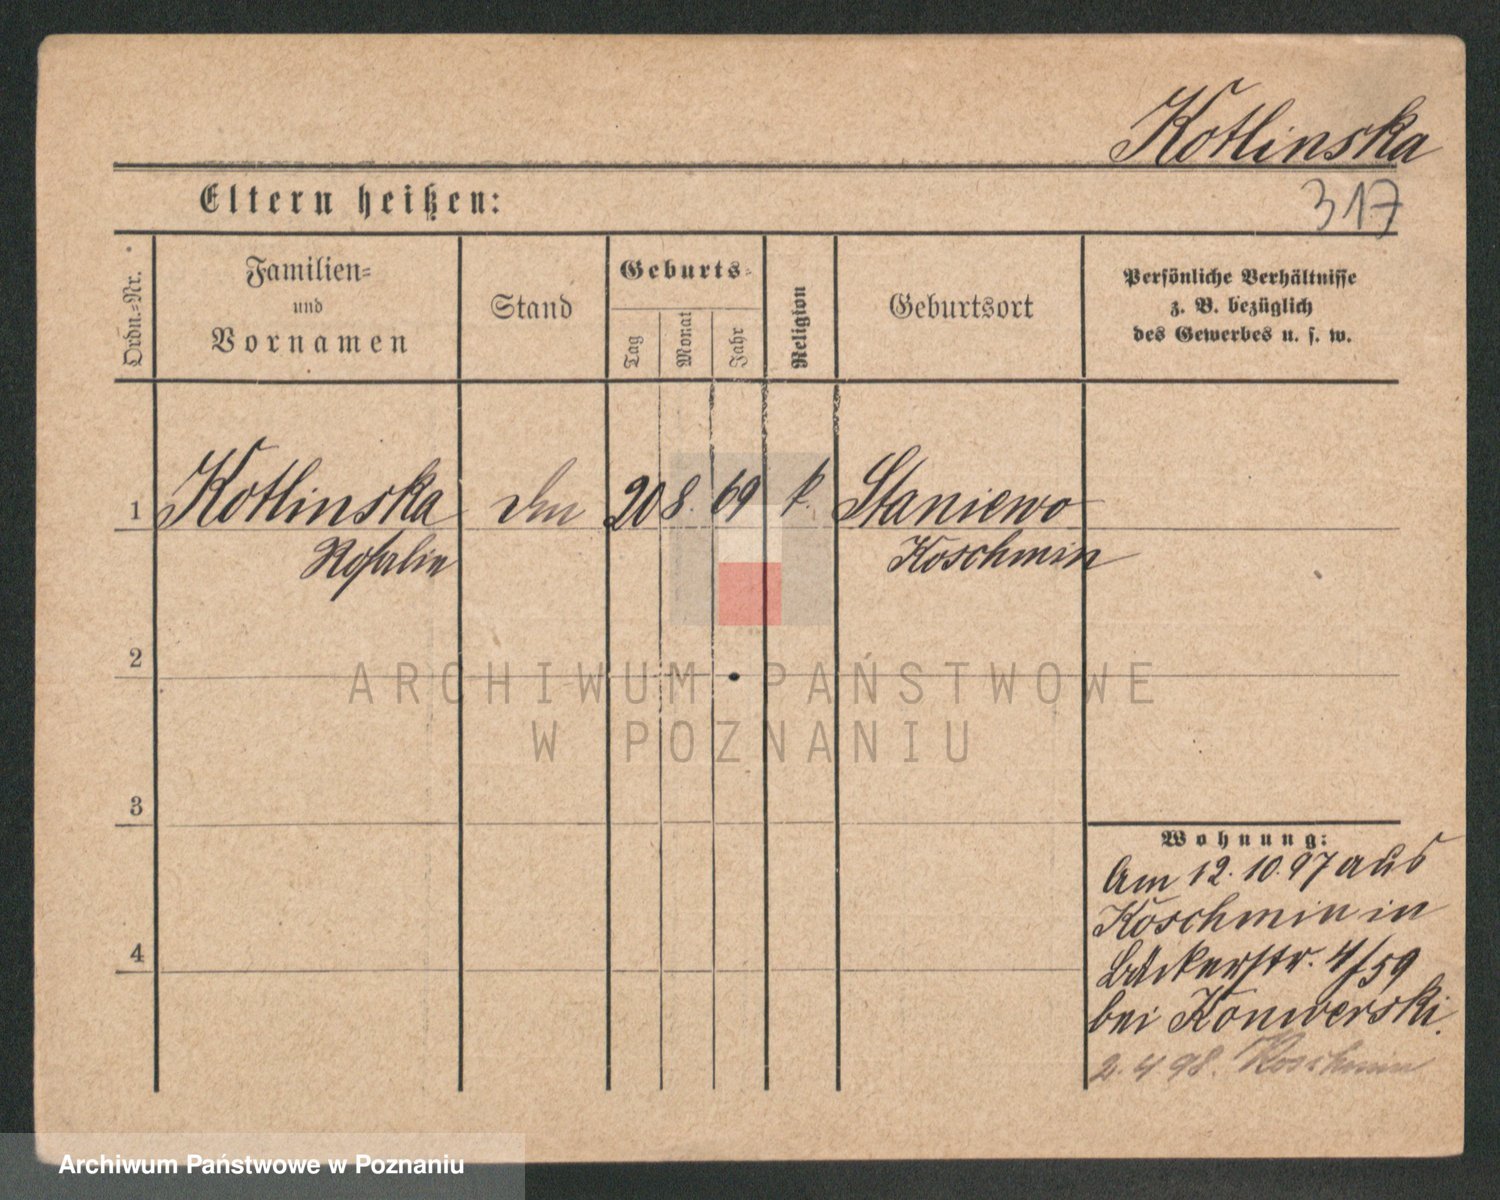 Kotlinska
317
Eltern heißen:
Ordn.-Nr.
Familien-
und
Vornamen
Stand
Geburts-
Tag
Monat
Jahr
Religion
Geburtsort
Persönliche Verhältnisse
z. B. bezüglich
des Gewerbes u. s. w.
1 Kotlinska 20 8. 69 k. Staniewo
Rosalie Koschmin
2
3
4
Wohnung:
Am 12. 10. 97 aus
Koschmin in
Bäckerstr. 4/59
bei Koniverski.
2. 4 98. Koschmin
ARCHIWUM PAŃSTWOWE
W POZNANIU
Archiwum Państwowe w Poznaniu